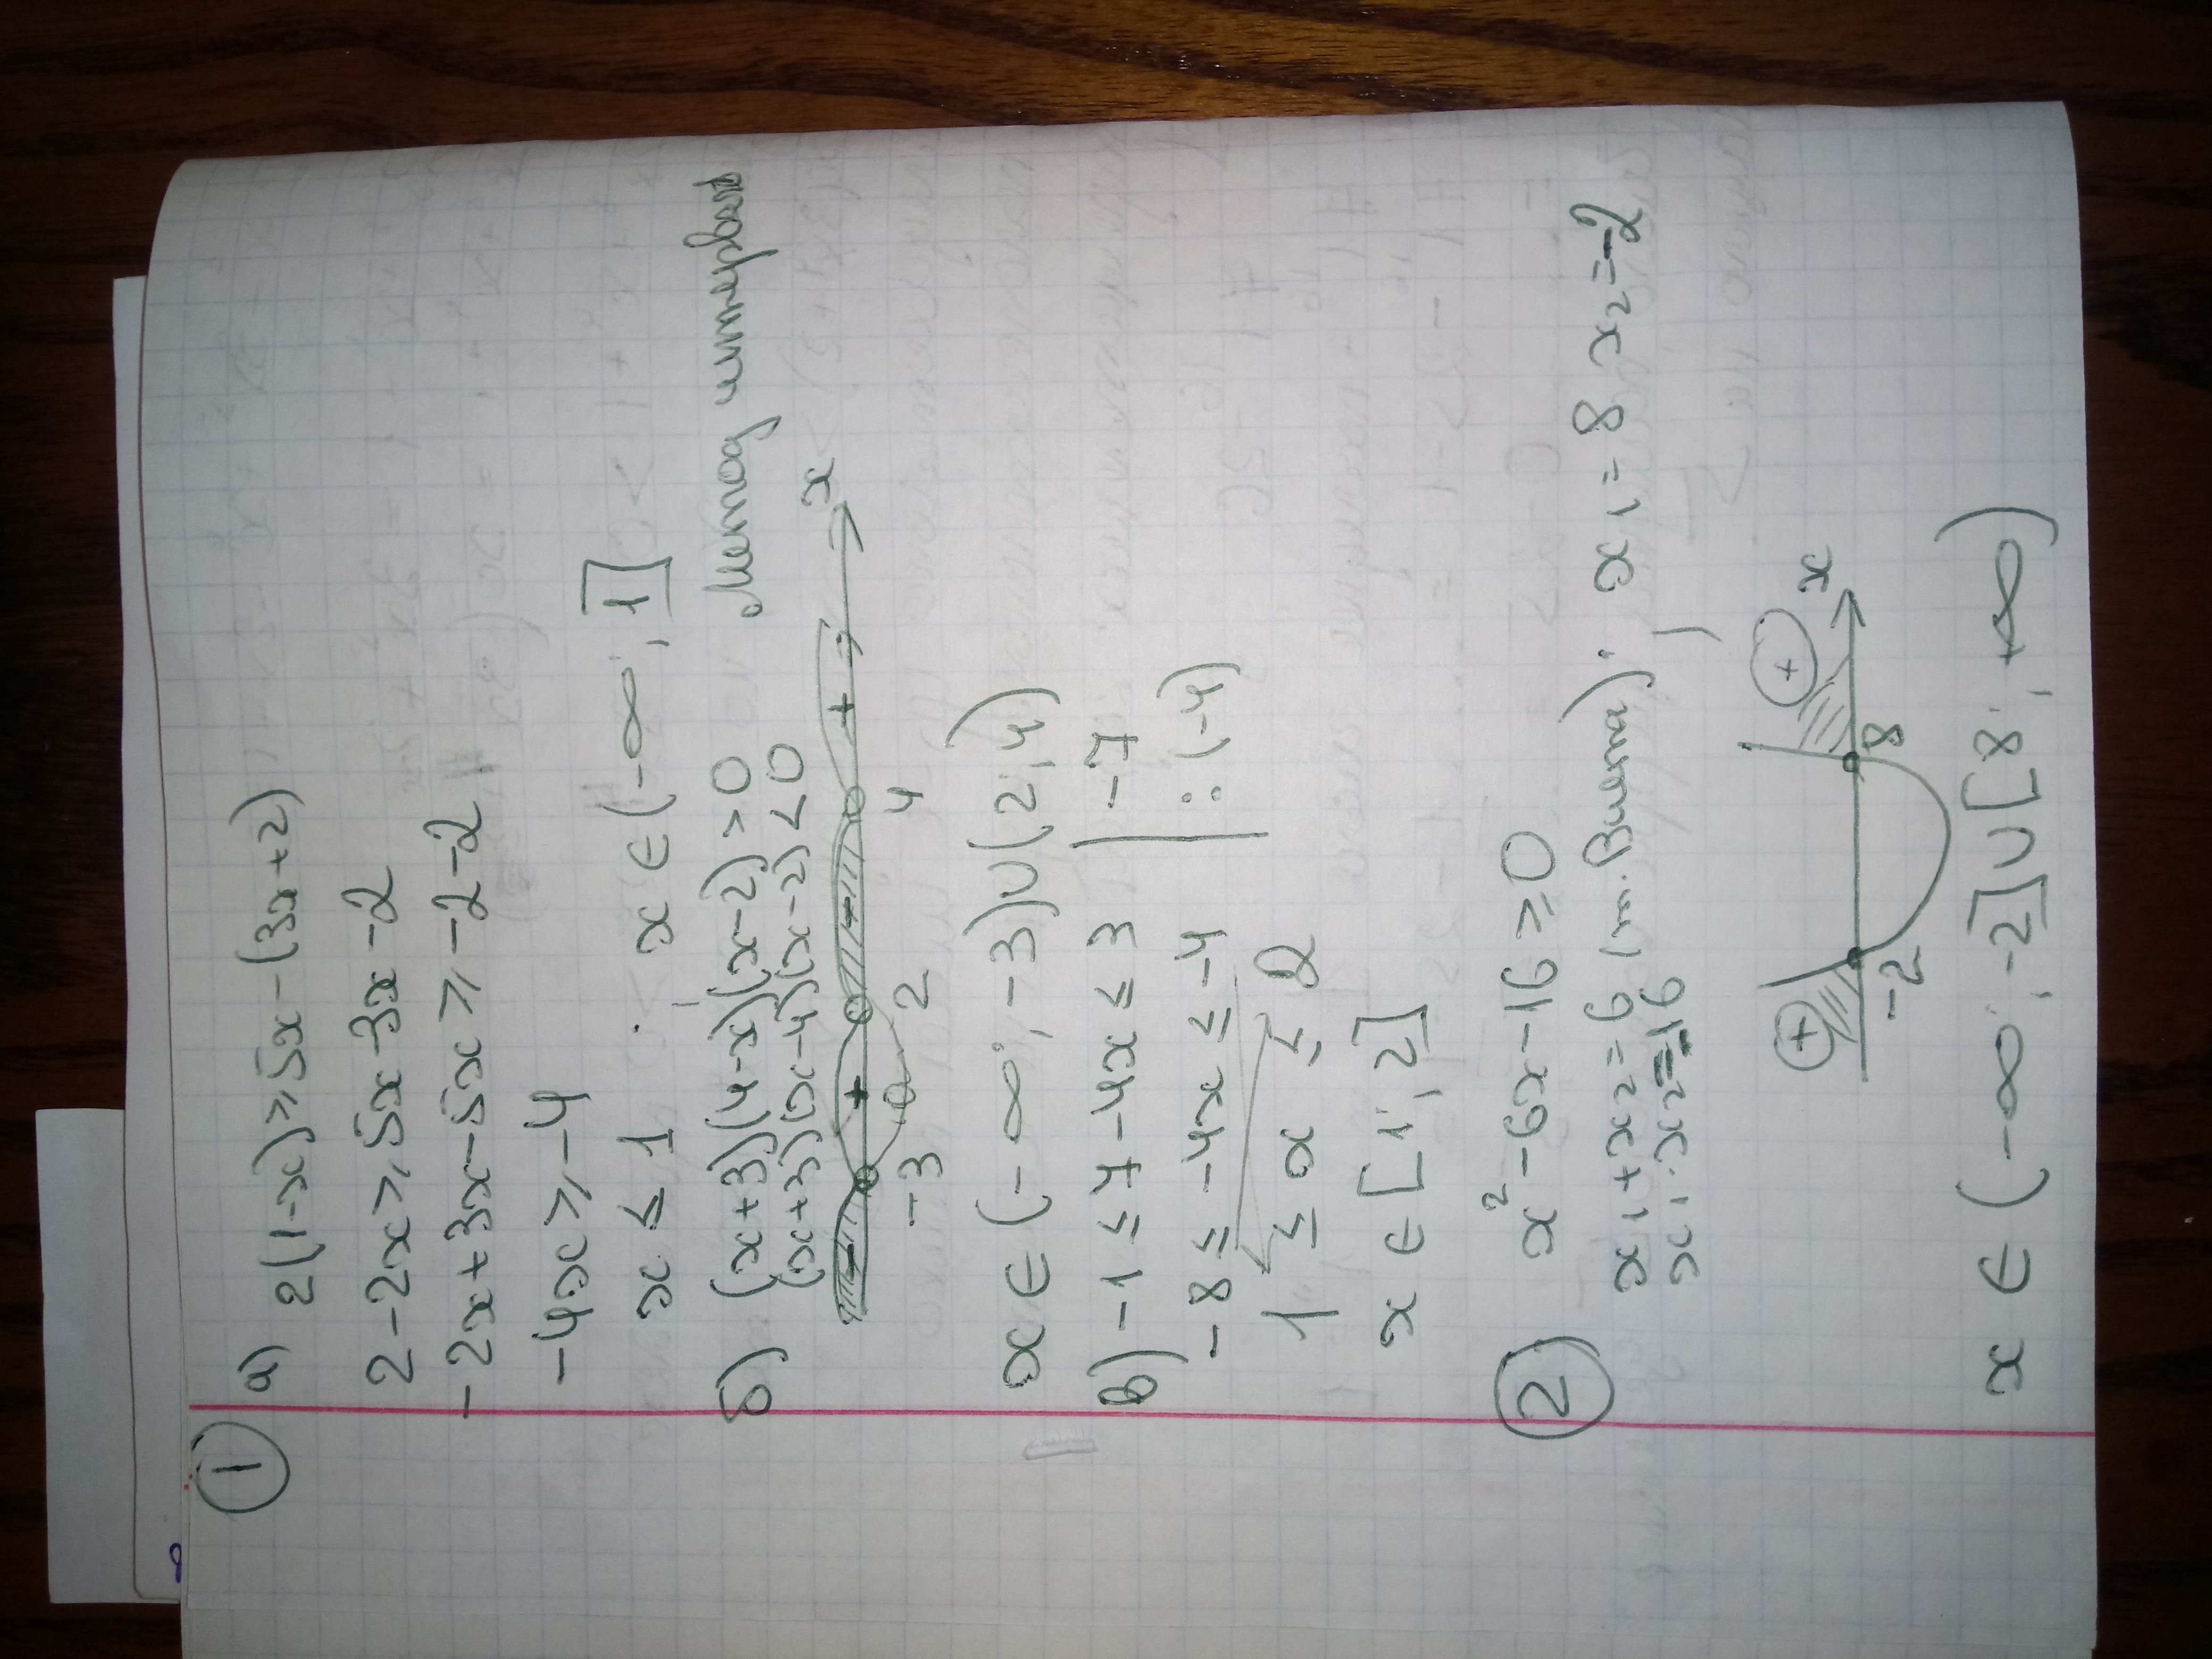 1 а) 2(1-x) ≥ 5x - (3x+2)
2 - 2x ≥ 5x - 3x - 2
-2x + 3x - 5x ≥ -2 - 2
-4x ≥ -4
x ≤ 1 ; x ∈ (-∞; 1]
б) (x+3)(4-x)(x-2) > 0
(x+3)(x-4)(x-2) < 0 Метод интервал
- + - + x
-3 2 4
x ∈ (-∞; -3) ∪ (2; 4)
в) -1 ≤ 7 - 4x ≤ 3 | -7
-8 ≤ -4x ≤ -4 | : (-4)
1 ≤ x ≤ 2
x ∈ [1; 2]
2 x² - 6x - 16 ≥ 0
x1 + x2 = 6 (т. Виета); x1 = 8 x2 = -2
x1 · x2 = -16
+ + x
-2 8
x ∈ (-∞; -2] ∪ [8; +∞)